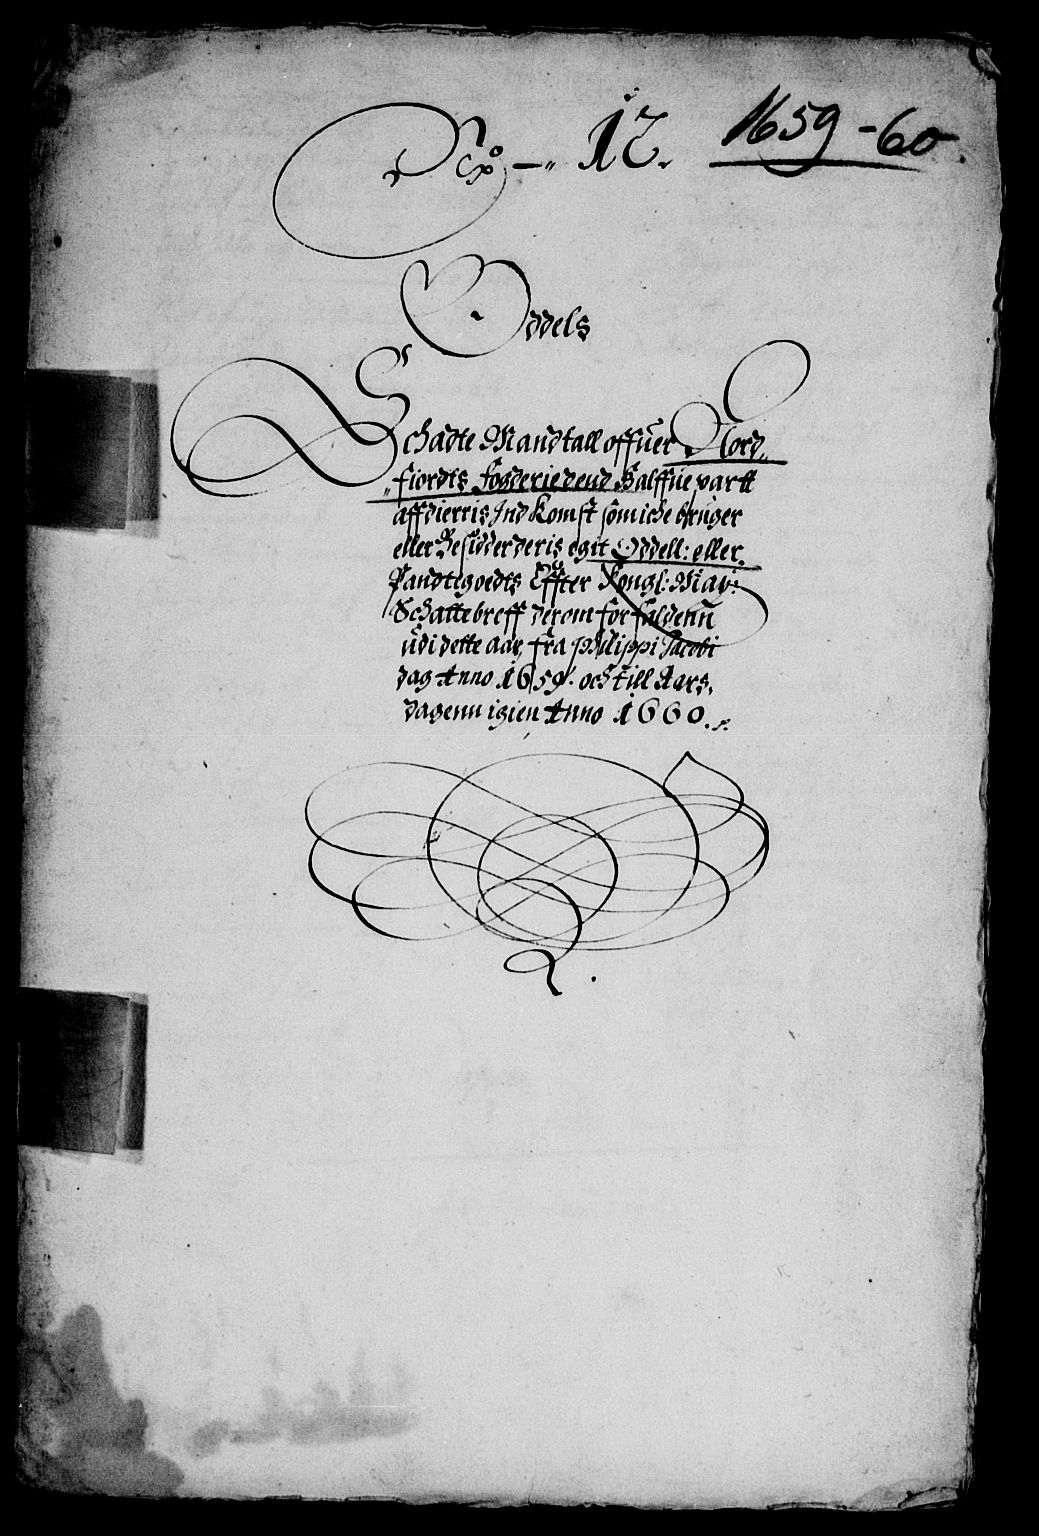 No – 12. 1659-60.
Oddels
Schadte Mandtall offuer Nord,
fiordts Fogderie dend Halffue partt
aff dierris Ind Komst som iche bruger
eller Besidder deris egit Oddell: eller,
Pandtegoedts Effter Kongl: May:
Schattebreff derom forfaldenn
udi dette aar, fra Philippi Jacobi
dag Anno 1659. och till Aars,
dagenn igien Anno 1660.